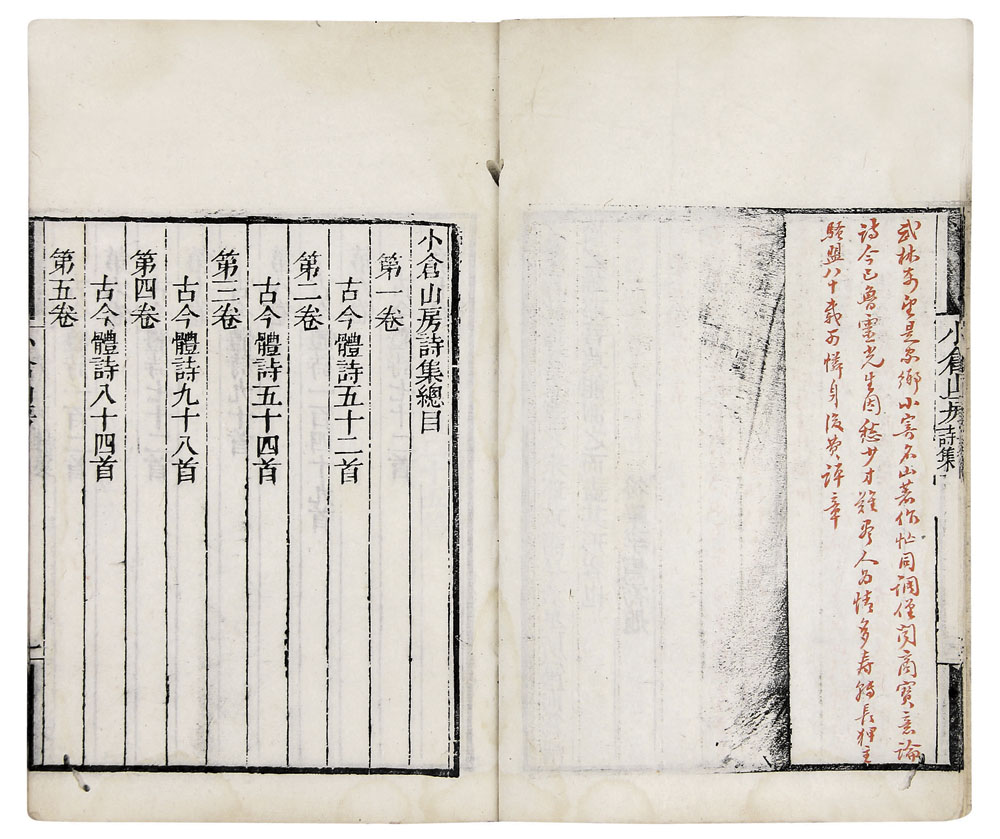 小倉山房詩集
武林是家鄉小寄名山著作忙同調僅聞商寶意論
詩今已魯靈光生因愁少才難人為情多壽轉長狎主
騷盟八十載可憐身後費評章
小倉山房詩集總目
第一卷
古今體詩五十二首
第二卷
古今體詩五十四首
第三卷
古今體詩九十八首
第四卷
古今體詩八十四首
第五卷